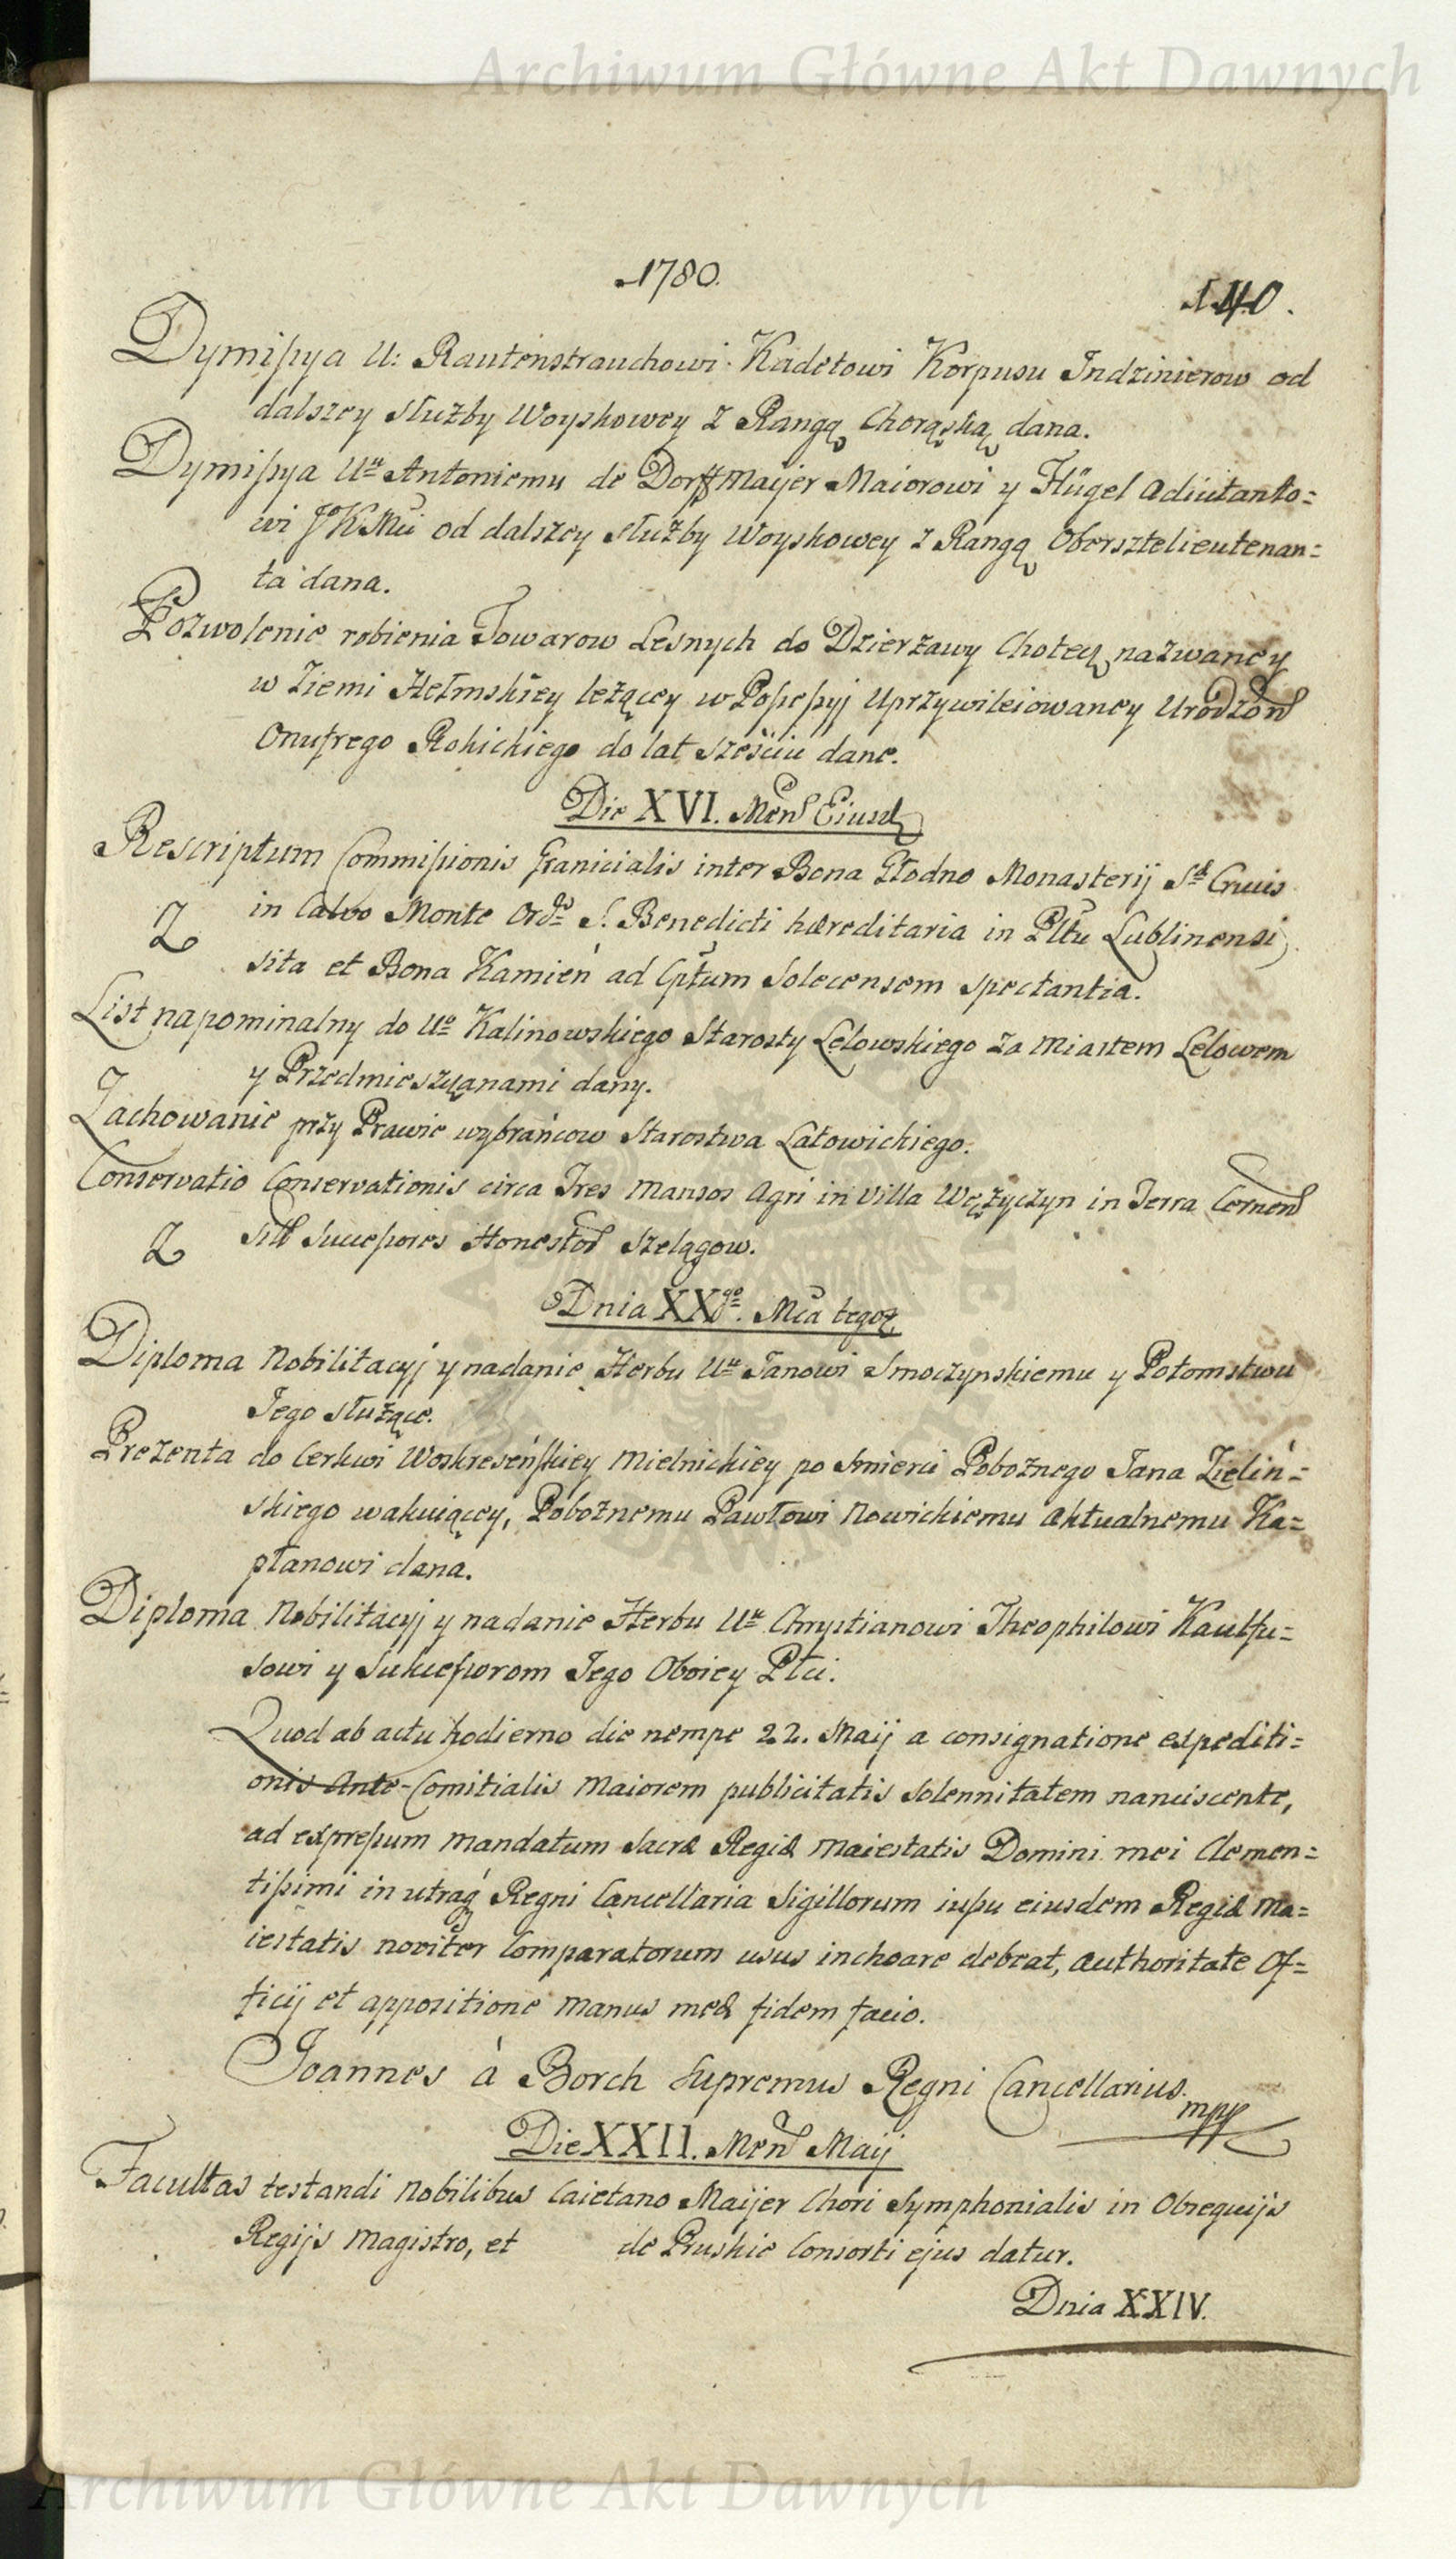 Archiwum Główne Akt Dawnych
1780.
140.
Dymissya U: Rautenstrauchowi Kadetowi Korpusu Indzinierow od
dalszey służby Woyskowey z Rangą Chorąską dana.
Dymissya Uu Antoniemu de Dorffmaijer Maiorowi y Flügel Adiutanto=
wi JKMci od dalszey służby Woyskowey z Rangą Obersztelieutenan=
ta dana.
Pozwolenie robienia Towarow Lesnych do Dzierżawy Chotecz nazwaney
w Ziemi Hełmskiey leżącey w Possessyj Uprzywileiowaney Urodzon
Onufrego Rokickiego do lat sześciu dane.
Die XVI. Men Eiusd
Rescriptum Commissionis Granicialis inter Bona Głodno Monasterij Stæ Crucis
Z in Calvo Monte Ordis S. Benedicti hæreditaria in Pltu Lublinensi
sita et Bona Kamień ad Cptum Solecensem spectantia.
List napominalny do Uo Kalinowskiego Starosty Lelowskiego za Miastem Lelowem
y Przedmieszczanami dany.
Zachowanie przy Prawie wybrańcow Starostwa Latowickiego.
Conservatio Conservationis circa Tres Mansos Agri in Villa Wężyczyn in Terra Cernen
Z sitt Successores Honestor Szelągow.
Dnia XXgo. Mca tegoż
Diploma Nobilitacyj y nadanie Herbu Uu Janowi Smoczynskiemu y Potomstwu
Jego służące.
Prezenta do Cerkwi Woskreseńskiey Mielnickiey po śmierci Pobożnego Jana Zieliń=
skiego wakuiącey, Pobożnemu Pawłowi Nowickiemu Aktualnemu Ka=
płanowi dana.
Diploma Nobilitacyj y nadanie Herbu Uu Chrystianowi Theophilowi Kaulfu=
sowi y Sukcessorom Jego Oboiey Płci.
Quod ab actu hodierno die nempe 22. Maij a consignatione expediti=
onis Ante-Comitialis Maiorem publicitatis solennitatem nanciscente,
ad expressum mandatum Sacræ Regiæ Maiestatis Domini mei Clemen=
tissimi in utraq Regni Cancellaria Sigillorum iussu eiusdem Regiæ Ma=
iestatis noviter Comparatorum usus inchoare debeat, authoritate Of=
ficij et appositione manus meæ fidem facio.
Joannes à Borch Supremus Regni Cancellarius.
mpp
Die XXII. Men Maij
Facultas testandi Nobilibus Caietano Maijer Chori Symphonialis in Obsequijs
Regijs Magistro, et de Pruskie Consorti ejus datur.
Dnia XXIV.
Archiwum Główne Akt Dawnych